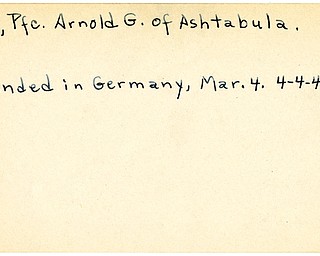 , Pfc. Arnold G. of Ashtabula.
nded in Germany, Mar. 4. 4-4-4